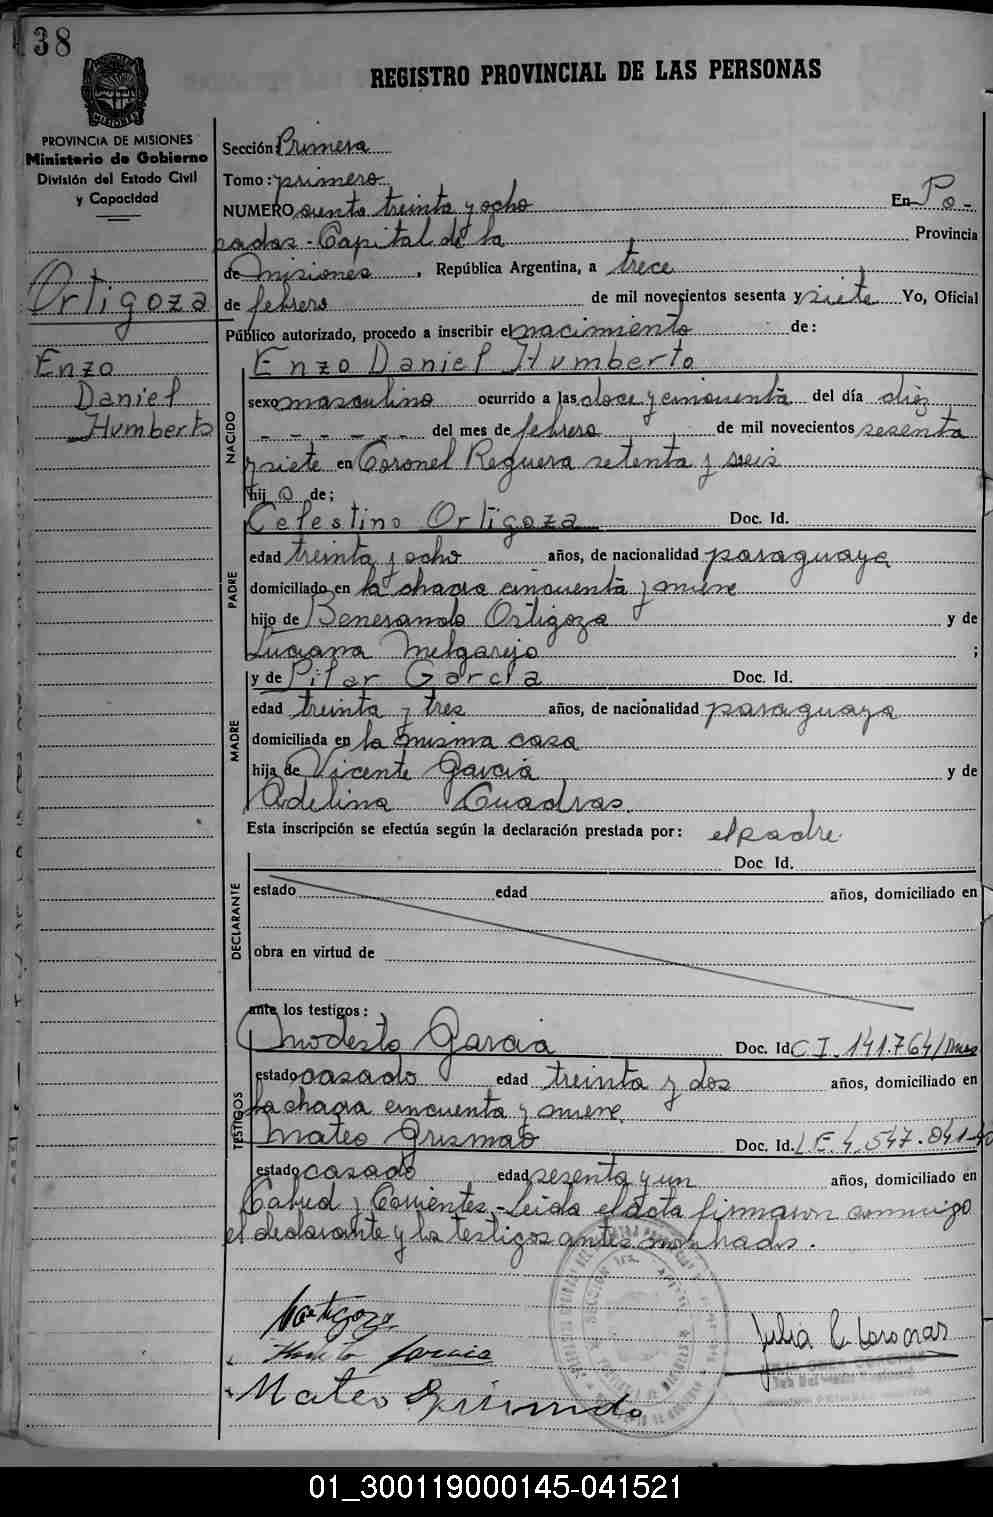 138
REGISTRO PROVINCIAL DE LAS PERSONAS
MISIONES
PROVINCIA DE MISIONES
Ministerio de Gobierno
División del Estado Civil
y Capacidad
Ortigoza
Enzo
Daniel
Humberto
Sección Primera
Tomo: primero
NUMERO ciento treinta y ocho En Po-
sadas - Capital de la Provincia
de misiones, República Argentina, a trece
de febrero de mil novecientos sesenta y siete Yo, Oficial
Público autorizado, procedo a inscribir el nacimiento de:
NACIDO
Enzo Daniel Humberto
sexo masculino ocurrido a las doce y cincuenta del día diez
- - - - - - del mes de febrero de mil novecientos sesenta
y siete en Coronel Reguera setenta y seis
hij o de;
PADRE
Celestino Ortigoza Doc. Id.
edad treinta y ocho años, de nacionalidad paraguaya
domiciliado en la chacra cincuenta y nueve
hijo de Benerando Ortigoza y de
Luciana Melgarejo ;
MADRE
y de Pilar Garcia Doc. Id.
edad treinta y tres años, de nacionalidad paraguaya
domiciliada en la misma casa
hija de Vicente Garcia y de
Adelina Cuadras
Esta inscripción se efectúa según la declaración prestada por: el padre
DECLARANTE
Doc. Id.
estado edad años, domiciliado en
obra en virtud de
ante los testigos:
TESTIGOS
Modesto Garcia Doc. Id. C.I. 141.764/
estado casado edad treinta y dos años, domiciliado en
la chacra cincuenta y nueve
Mateo Doc. Id. L.E. 4.547.041-
estado casado edad sesenta y un años, domiciliado en
Cabred y Corrientes - Leida el acta firmaron conmigo
el declarante y los testigos antes nombrados.
Mateo
Julia
01_300119000145-041521